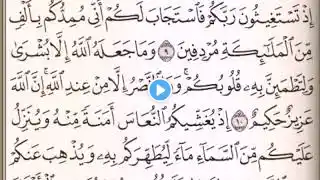 إِذۡ تَسۡتَغِيثُونَ رَبَّكُمۡ فَٱسۡتَجَابَ لَكُمۡ أَنِّي مُمِدُّكُم بِأَلۡفٖ
مِّنَ ٱلۡمَلَٰٓئِكَةِ مُرۡدِفِينَ ٩ وَمَا جَعَلَهُ ٱللَّهُ إِلَّا بُشۡرَىٰ
وَلِتَطۡمَئِنَّ بِهِۦ قُلُوبُكُمۡۚ وَمَا ٱلنَّصۡرُ إِلَّا مِنۡ عِندِ ٱللَّهِۚ إِنَّ ٱللَّهَ
عَزِيزٌ حَكِيمٌ ١٠ إِذۡ يُغَشِّيكُمُ ٱلنُّعَاسَ أَمَنَةٗ مِّنۡهُ وَيُنَزِّلُ
عَلَيۡكُم مِّنَ ٱلسَّمَآءِ مَآءٗ لِّيُطَهِّرَكُم بِهِۦ وَيُذۡهِبَ عَنكُمۡ